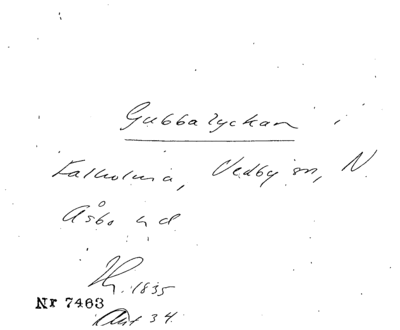 Gubbalyckan
Falholma, Vedby sn, N
Åsbo hd
1835
Nr 7463
34